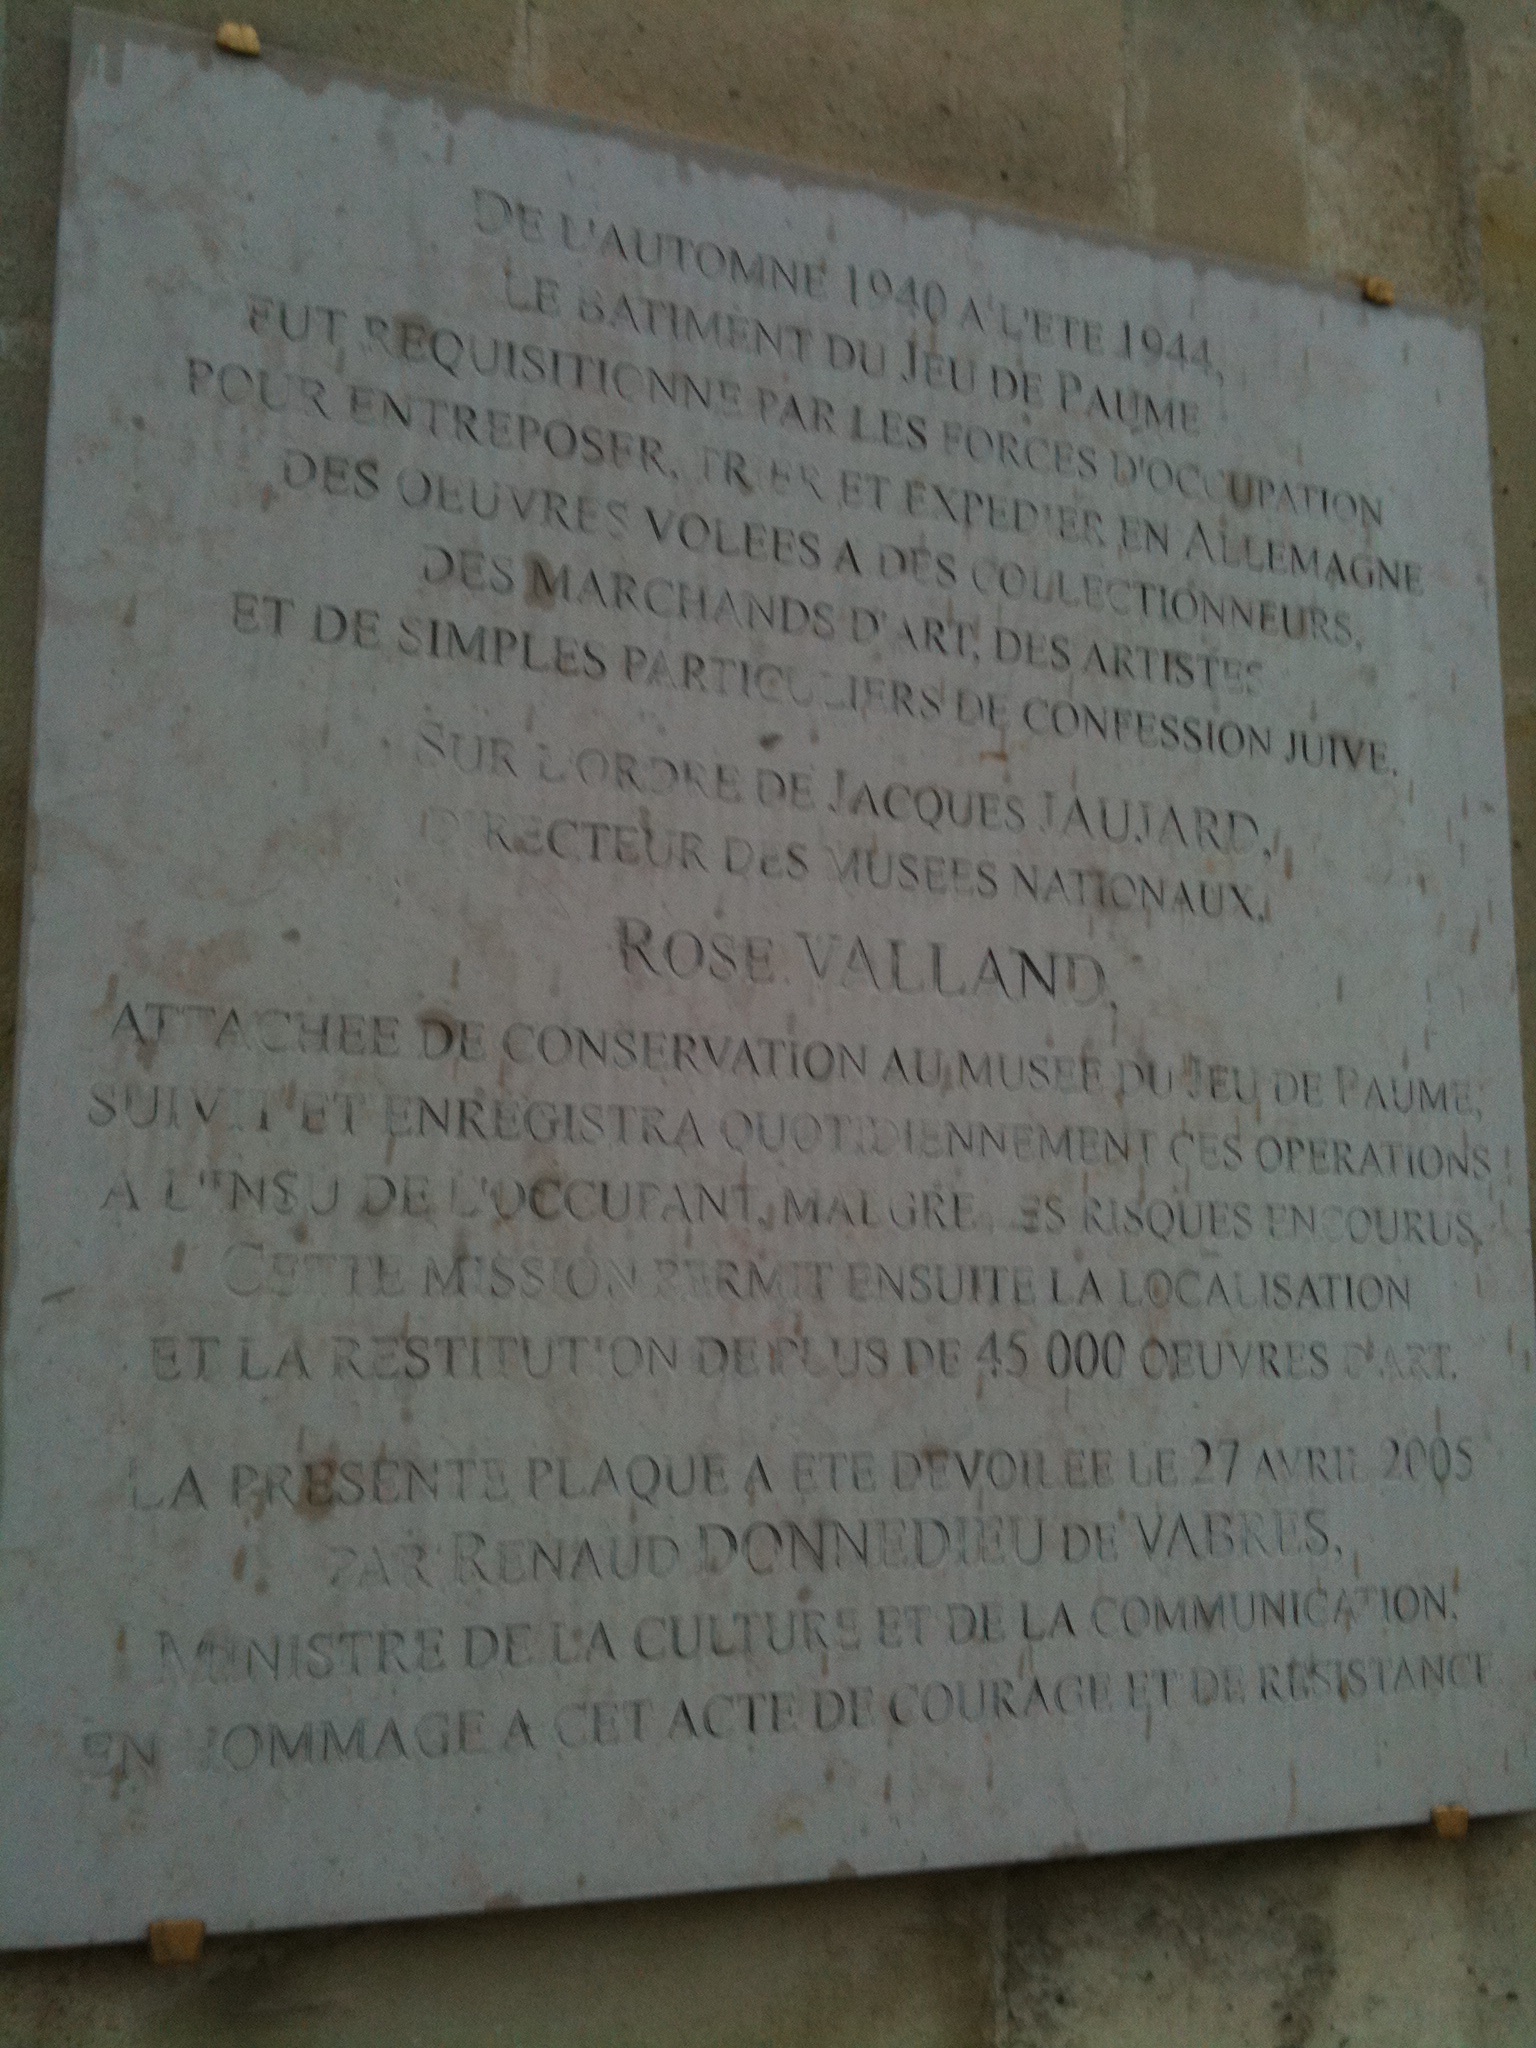 DE L'AUTOMNE 1940 A L'ETE 1944,
LE BATIMENT DU JEU DE PAUME
FUT REQUISITIONNE PAR LES FORCES D'OCCUPATION
POUR ENTREPOSER, TRIER ET EXPEDIER EN ALLEMAGNE
DES OEUVRES VOLEES A DES COLLECTIONNEURS,
DES MARCHANDS D'ART, DES ARTISTES
ET DE SIMPLES PARTICULIERS DE CONFESSION JUIVE.
SUR L'ORDRE DE JACQUES JAUJARD,
DIRECTEUR DES MUSEES NATIONAUX,
ROSE VALLAND,
ATTACHEE DE CONSERVATION AU MUSEE DU JEU DE PAUME,
SUIVIT ET ENREGISTRA QUOTIDIENNEMENT CES OPERATIONS
A L'INSU DE L'OCCUPANT, MALGRE LES RISQUES ENCOURUS.
CETTE MISSION PERMIT ENSUITE LA LOCALISATION
ET LA RESTITUTION DE PLUS DE 45 000 OEUVRES D'ART.
LA PRESENTE PLAQUE A ETE DEVOILEE LE 27 AVRIL 2005
PAR RENAUD DONNEDIEU DE VABRES,
MINISTRE DE LA CULTURE ET DE LA COMMUNICATION.
EN HOMMAGE A CET ACTE DE COURAGE ET DE RESISTANCE